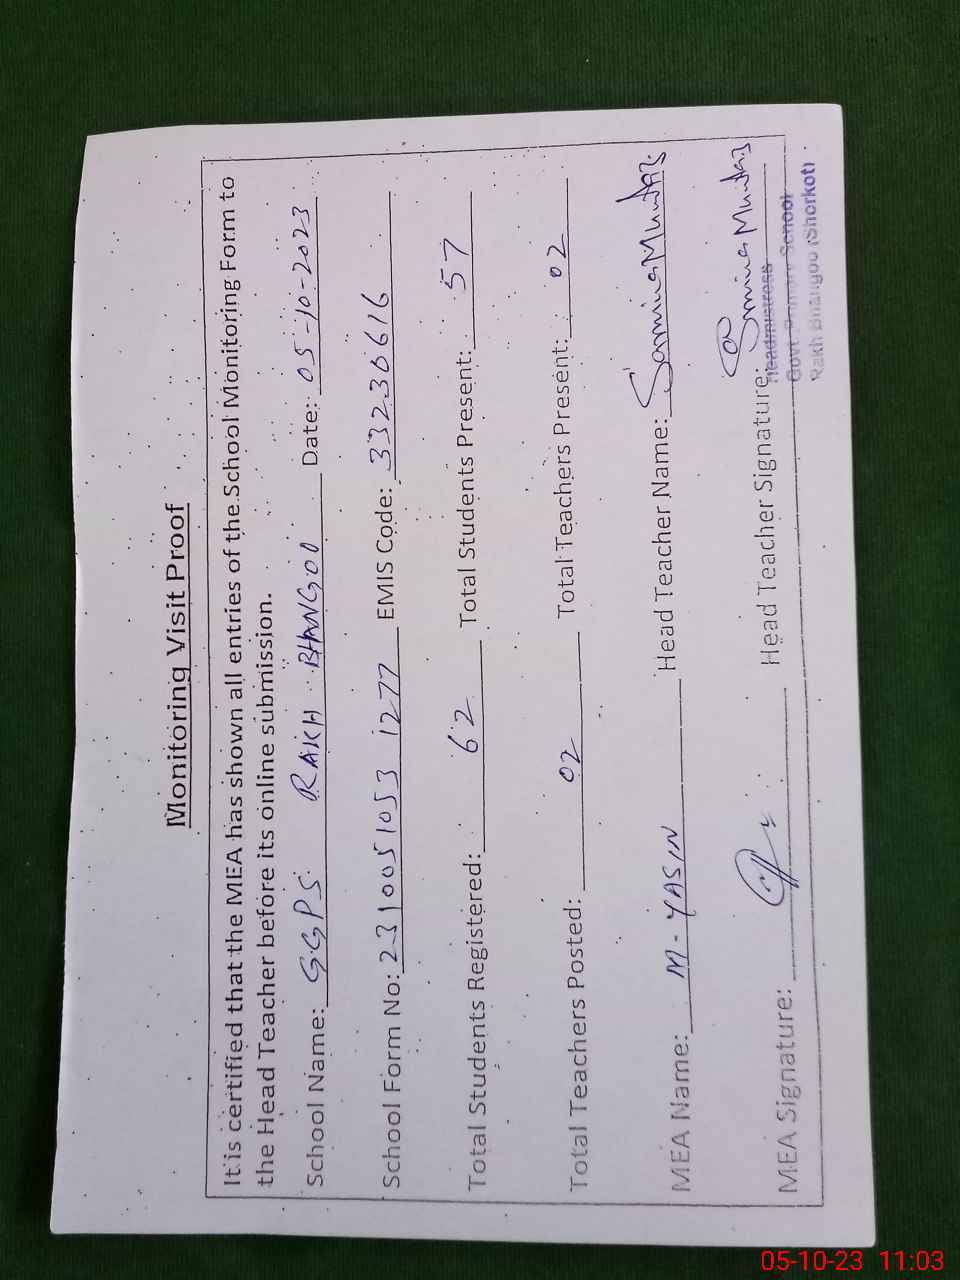 Monitoring Visit Proof
It is certified that the MEA has shown all entries of the School Monitoring Form to
the Head Teacher before its online submission.
School Name: G.G.P.S RAKH BHANGOO Date: 05-10-2023
School Form No: 2310051053 1277 EMIS Code: 33230616
Total Students Registered: 62 Total Students Present: 57
Total Teachers Posted: 02 Total Teachers Present: 02
MEA Name: M. YASIN Head Teacher Name: Samina Mumtaz
MEA Signature: Head Teacher Signature: Samina Mumtaz
Headmistress
Govt. Primary School
Rakh Bhangoo (Shorkot)
05-10-23 11:03